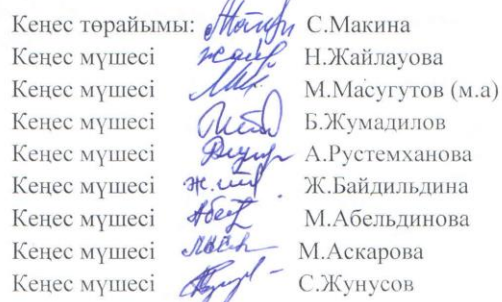 Кеңес төрайымы: С.Макина
Кеңес мүшесі Н.Жайлауова
Кеңес мүшесі М.Масугутов (м.а)
Кеңес мүшесі Б.Жумадилов
Кеңес мүшесі А.Рустемханова
Кеңес мүшесі Ж.Байдильдина
Кеңес мүшесі М.Абельдинова
Кеңес мүшесі М.Аскарова
Кеңес мүшесі С.Жунусов